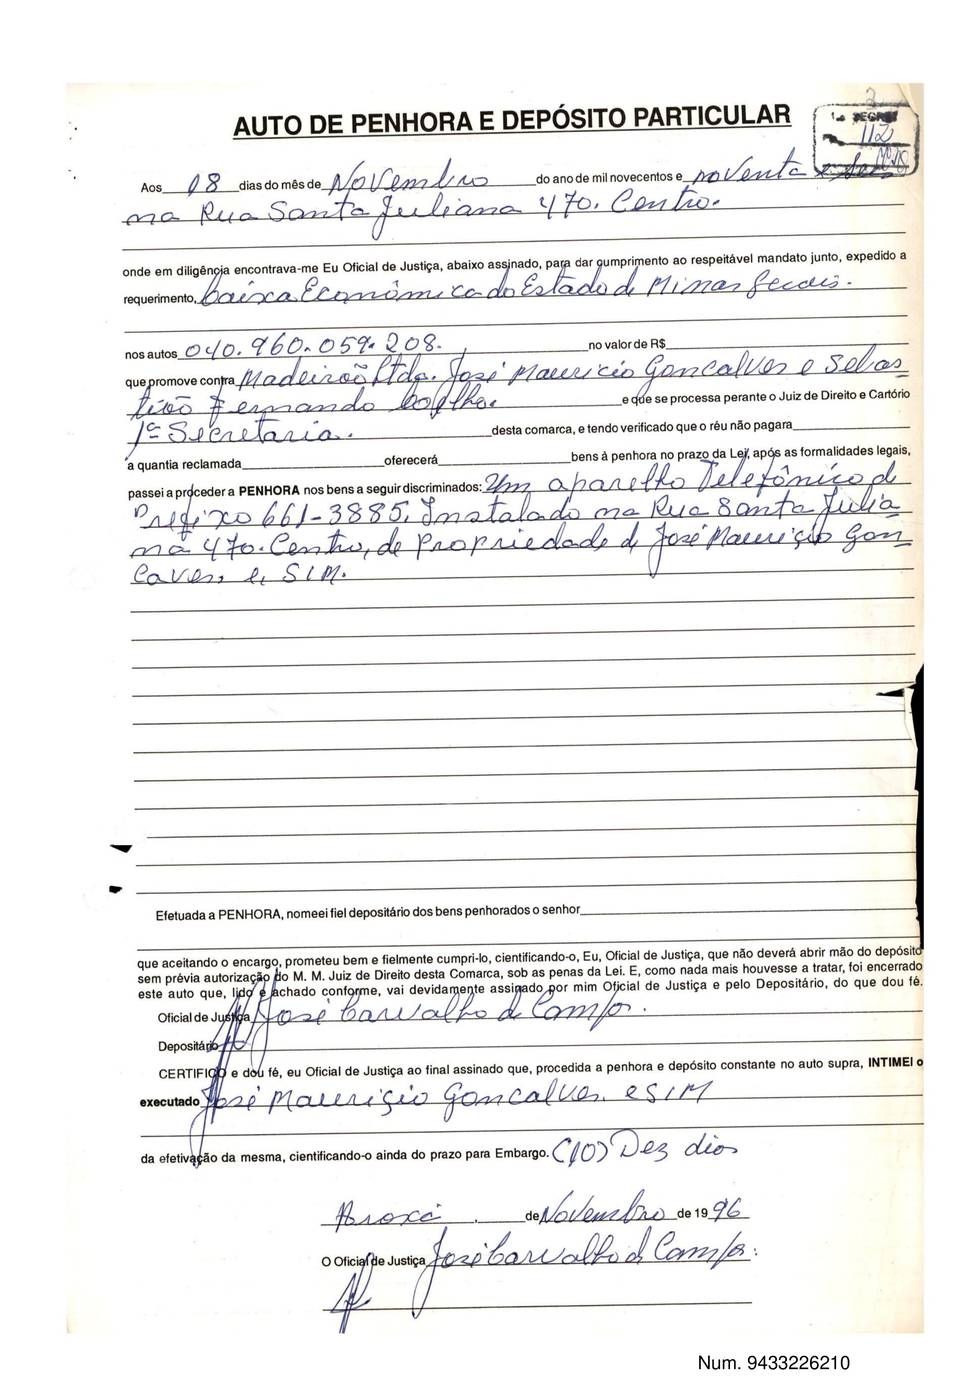 AUTO DE PENHORA E DEPÓSITO PARTICULAR
112
Aos 08 dias do mês de Novembro do ano de mil novecentos e noventa e seis
na Rua Santa Juliana 470. Centro.
onde em diligência encontrava-me Eu Oficial de Justiça, abaixo assinado, para dar cumprimento ao respeitável mandato junto, expedido a
requerimento, Caixa Econômica do Estado de Minas Gerais.
nos autos 040.960.059.208. no valor de R$
que promove contra Madeirão Ltda. José Mauricio Goncalves e Sebas
tião Fernando Coelho. e que se processa perante o Juiz de Direito e Cartório
1ª Secretaria. desta comarca, e tendo verificado que o réu não pagara
a quantia reclamada oferecerá bens à penhora no prazo da Lei, após as formalidades legais,
passei a proceder a PENHORA nos bens a seguir discriminados: Um aparelho Telefônico de
Prefixo 661-3885, Instalado na Rua Santa Julia
na 470. Centro, de Propriedade de José Mauriçio Gon
Caves, e, SIM.
Efetuada a PENHORA, nomeei fiel depositário dos bens penhorados o senhor
que aceitando o encargo, prometeu bem e fielmente cumpri-lo, cientificando-o, Eu, Oficial de Justiça, que não deverá abrir mão do depósito
sem prévia autorização do M. M. Juiz de Direito desta Comarca, sob as penas da Lei. E, como nada mais houvesse a tratar, foi encerrado
este auto que, lido e achado conforme, vai devidamente assinado por mim Oficial de Justiça e pelo Depositário, do que dou fé.
Oficial de Justiça José Carvalho de Campos.
Depositário
CERTIFICO e dou fé, eu Oficial de Justiça ao final assinado que, procedida a penhora e depósito constante no auto supra, INTIMEI o
executado José Mauriçio Goncalves. e SIM
da efetivação da mesma, cientificando-o ainda do prazo para Embargo. (10) Dez dias
Araxá , de Novembro de 1996
O Oficial de Justiça José Carvalho de Campos.
Num. 9433226210